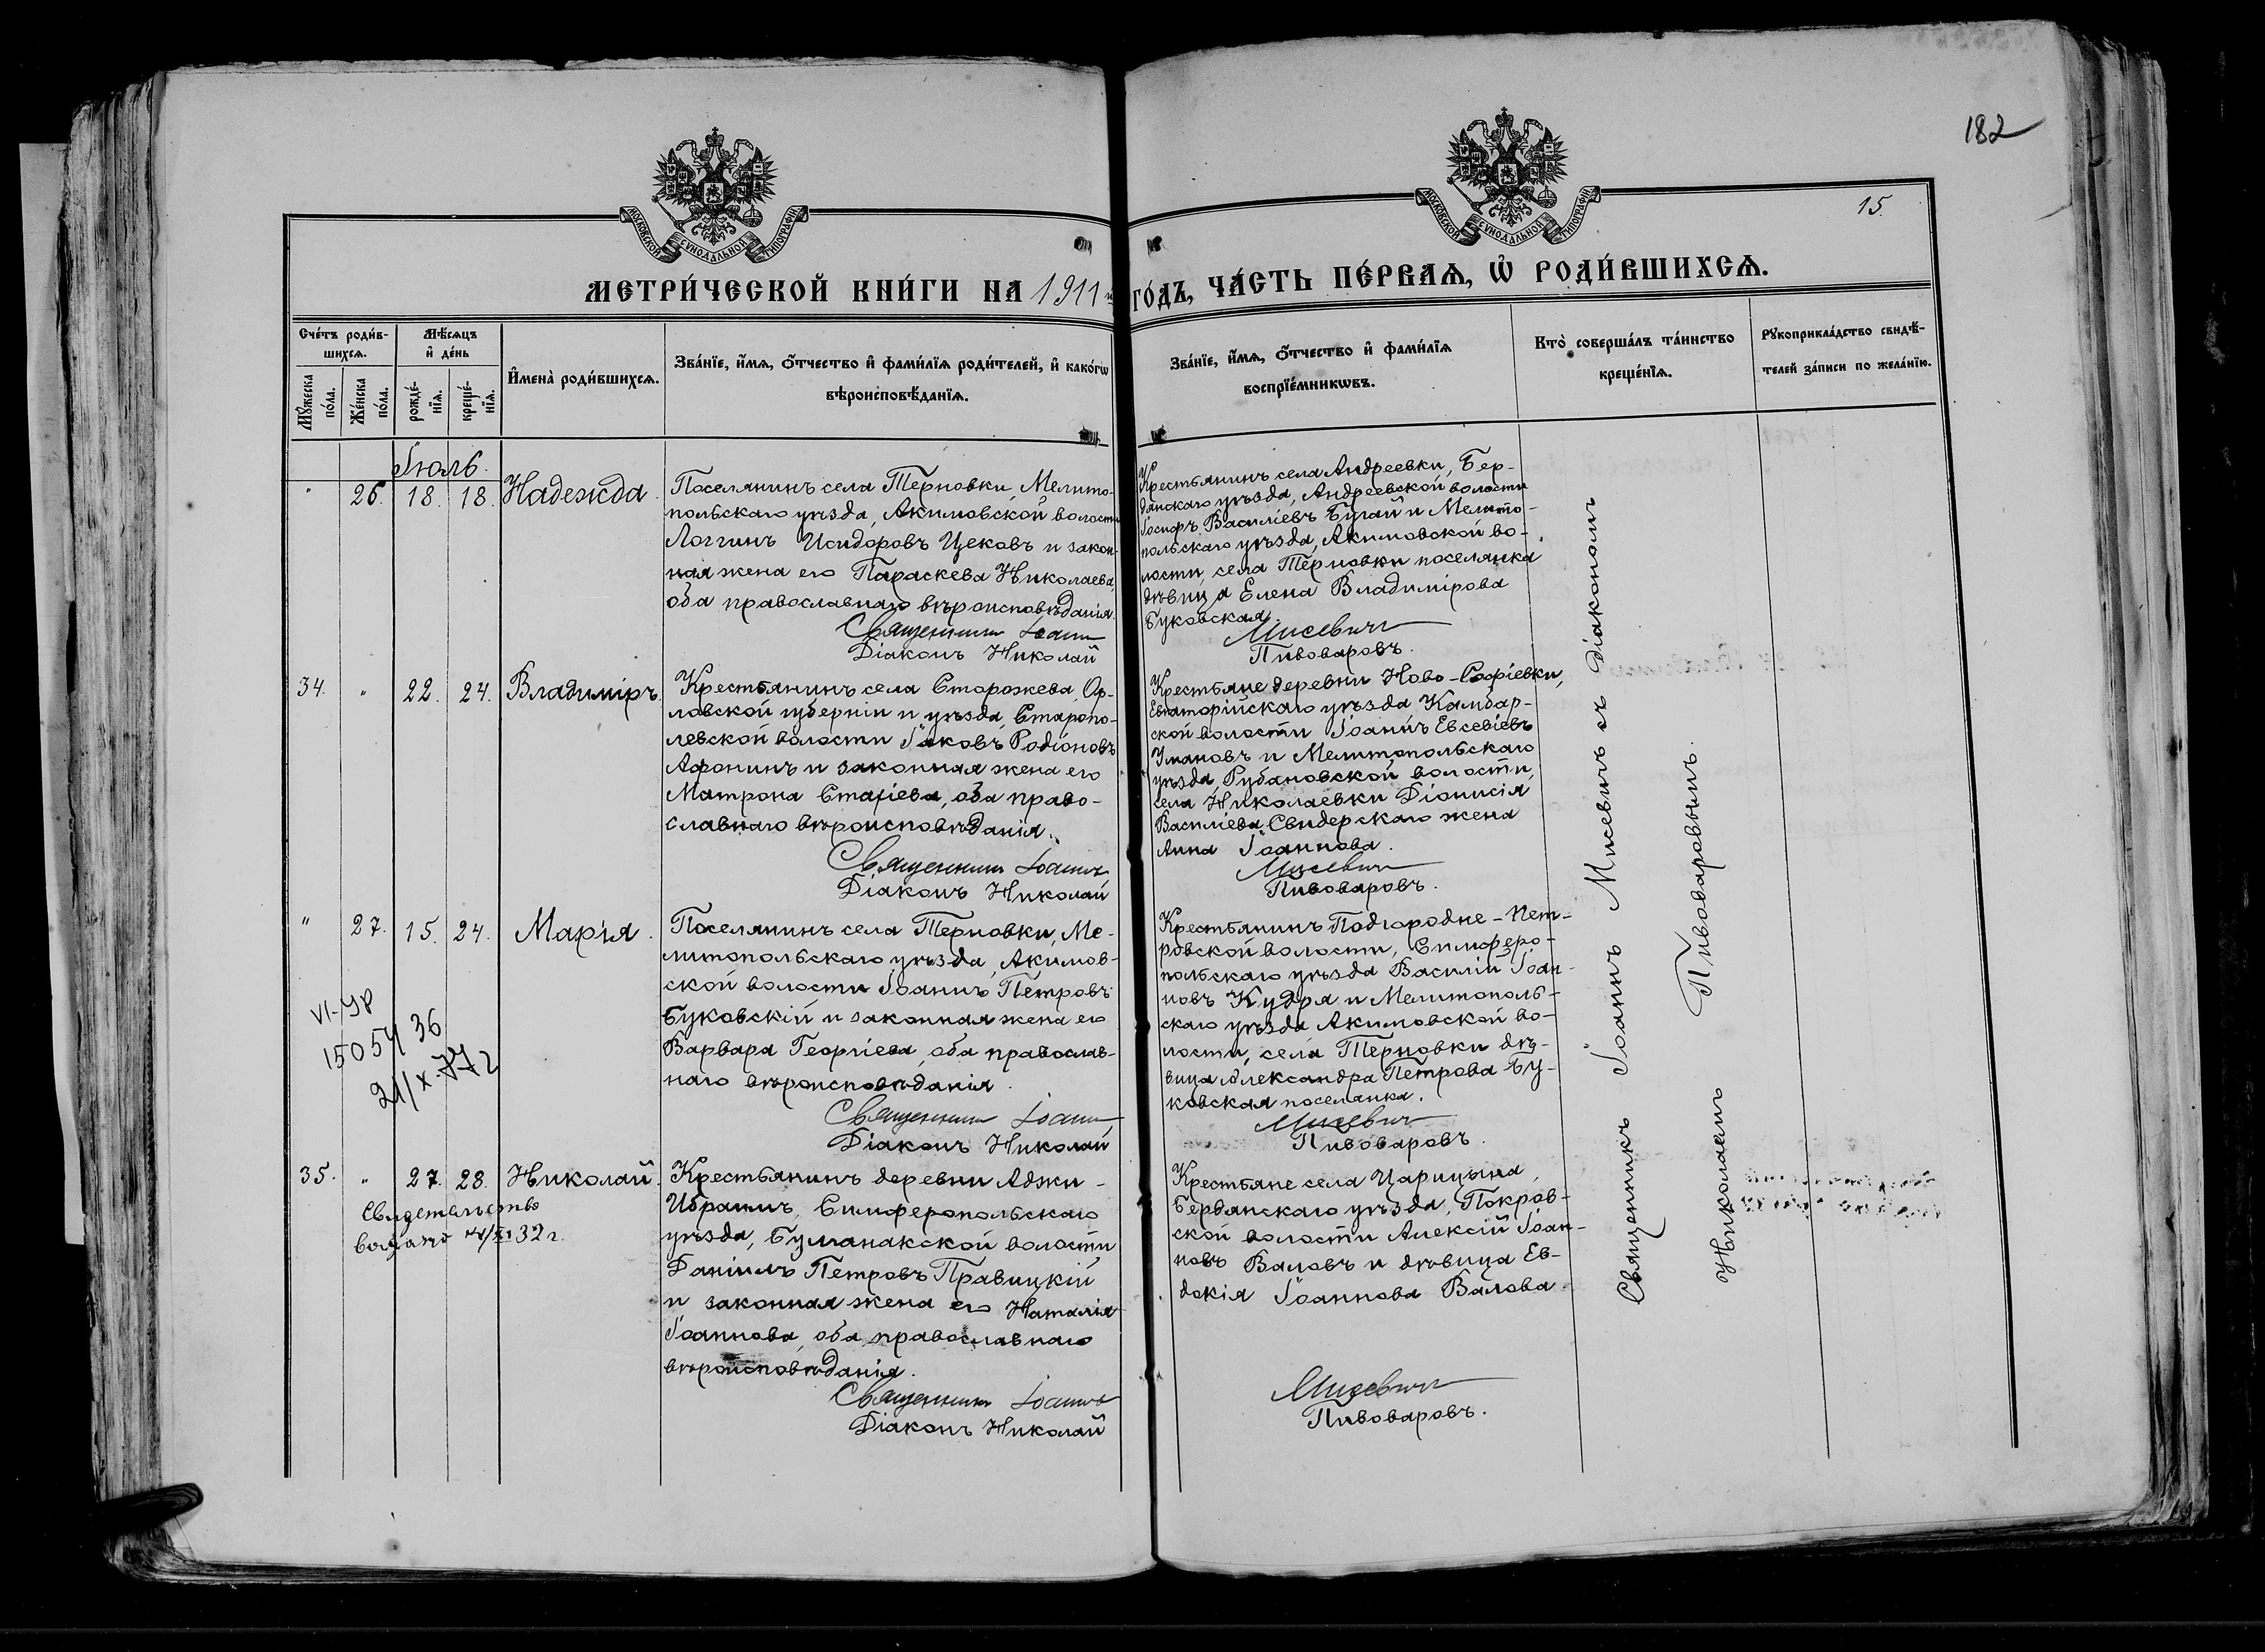 182
15.
МОСКОВСКОЙ СѴНОДАЛЬНОЙ ТИПОГРАФІИ
МОСКОВСКОЙ СѴНОДАЛЬНОЙ ТИПОГРАФІИ
МЕТРИ́ЧЕСКОЙ КНИ́ГИ НА 1911 й ГО́ДЪ, ЧА́СТЬ ПЕ́РВАѦ, Ѡ҆ РОДИ́ВШИХСѦ.
Сче́тъ роди́в-
шихсѧ.
Мꙋ́жеска
по́ла.
Же́нска
по́ла.
Мѣ́сѧцъ
и҆ де́нь
рожде́-
нїѧ.
креще́-
нїѧ.
И҆мена̀ роди́вшихсѧ.
Зва́нїе, и҆́мѧ, ѻ҆́тчество и҆ фами́лїѧ роди́телей, и҆ како́гѡ
вѣроисповѣ́данїѧ.
Зва́нїе, и҆́мѧ, ѻ҆́тчество и҆ фами́лїѧ
воспрїе́мникѡвъ.
Кто̀ соверша́лъ та́инство
креще́нїѧ.
Рꙋкоприкла́дство свидѣ́-
телей за́писи по жела́нїю.
Іюль.
" 26. 18. 18. Надежда.
Поселянинъ села Терновки, Мелито-
польскаго уѣзда, Акимовской волости
Логгинъ Исидоровъ Цековъ и закон-
ная жена его Параскева Николаева,
оба православнаго вѣроисповѣданія.
Священникъ Іоаннъ
Діаконъ Николай
Крестьянинъ села Андреевки, Бер-
дянскаго уѣзда, Андреевской волости
Іосифъ Василіевъ Бугай и Мелито-
польскаго уѣзда, Акимовской во-
лости, села Терновки поселянка
дѣвица Елена Владимірова
Буковская.
Мисевичъ
Пивоваровъ.
34. " 22. 24. Владиміръ.
Крестьянинъ села Сторожева, Ор-
ловской губерніи и уѣзда, Старопо-
левской волости Іаковъ Родіоновъ
Афонинъ и законная жена его
Матрона Стахіева, оба право-
славнаго вѣроисповѣданія.
Священникъ Іоаннъ
Діаконъ Николай
Крестьяне деревни Ново-Софіевки,
Евпаторійскаго уѣзда Камбар-
ской волости Іоаннъ Евсевіевъ
Умановъ и Мелитопольскаго
уѣзда, Рубановской волости,
села Николаевки Діонисія
Василіева Свидерскаго жена
Анна Іоаннова.
Мисевичъ
Пивоваровъ.
" 27. 15. 24. Марія.
Поселянинъ села Терновки, Ме-
литопольскаго уѣзда, Акимов-
ской волости Іоаннъ Петровъ
Буковскій и законная жена его
Варвара Георгіева, оба православ-
наго вѣроисповѣданія.
Священникъ Іоаннъ
Діаконъ Николай
Крестьянинъ Подгородне-Пет-
ровской волости, Симферо-
польскаго уѣзда Василій Іоан-
новъ Кудря и Мелитополь-
скаго уѣзда Акимовской во-
лости, села Терновки дѣ-
вица Александра Петрова Бу-
ковская поселянка.
Мисевичъ
Пивоваровъ.
VI-УР
150541 36
21/X-77г
35. " 27. 28. Николай.
Свидетельство
Крестьянинъ деревни Аджи-
Ибрамъ, Симферопольскаго
уѣзда, Буманакской волости
Даніилъ Петровъ Правицкій
и законная жена его Наталія
Іоаннова, оба православнаго
вѣроисповѣданія.
Священникъ Іоаннъ
Діаконъ Николай
Крестьяне села Царицына,
Бердянскаго уѣзда, Покров-
ской волости Алексій Іоан-
новъ Валовъ и дѣвица Ев-
докія Іоаннова Валова.
Мисевичъ
Пивоваровъ.
Священникъ Іоаннъ Мисевичъ съ діакономъ
Николаемъ Пивоваровымъ.